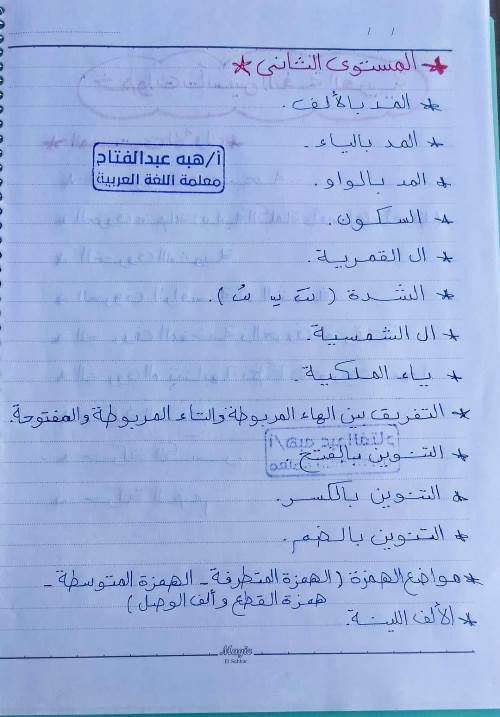 / /
* المستوى الثانى *
* المد بالألف.
* المد بالياء.
أ/هبه عبدالفتاح
معلمة اللغة العربية
* المد بالواو.
* السكون.
* ال القمرية.
* الشدة ( ـَّ ـِّ ـُّ ).
* ال الشمسية.
* ياء الملكية.
* التفريق بين الهاء المربوطة والتاء المربوطة والمفتوحة.
* التنوين بالفتح
* التنوين بالكسر.
* التنوين بالضم.
* مواضع الهمزة ( الهمزة المتطرفة - الهمزة المتوسطة -
همزة القطع وألف الوصل )
* الألف اللينة.
Magic
El Sahhar